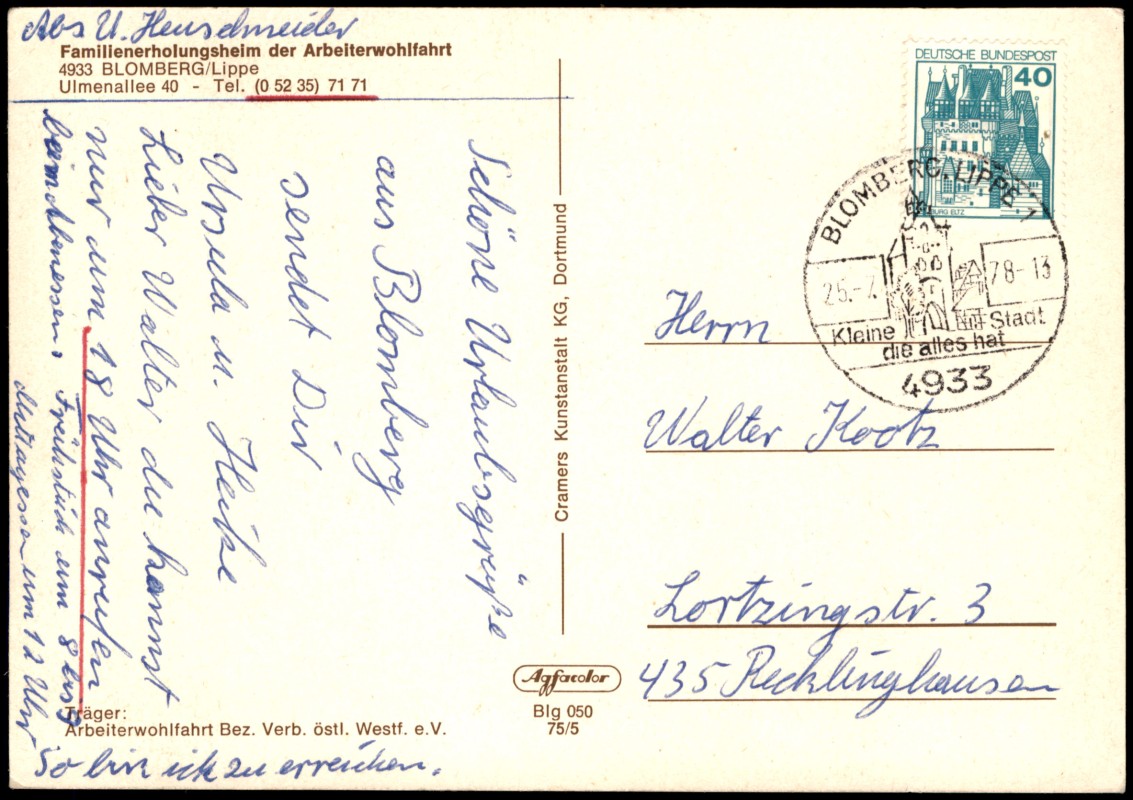 Abs U. Henschneider
Familienerholungsheim der Arbeiterwohlfahrt
4933 BLOMBERG/Lippe
Ulmenallee 40 - Tel. (0 52 35) 71 71
Schöne Urlaubsgrüße
aus Blomberg
sendet Dir
Ursula u. Heike
Lieber Walter du kannst
nur um 18 Uhr anrufen
beim Abenessen. Frühstück um 8 bis 9
Mittagessen um 12 Uhr
So bin ich zu erreichen.
Träger:
Arbeiterwohlfahrt Bez. Verb. östl. Westf. e.V.
Cramers Kunstanstalt KG, Dortmund
Agfacolor
Blg 050
75/5
DEUTSCHE BUNDESPOST
40
BURG ELTZ
BLOMBERG, LIPPE 1
25.-7. 78-13
Kleine Stadt
die alles hat
4933
Herrn
Walter Kootz
Lortzingstr. 3
435 Recklinghausen